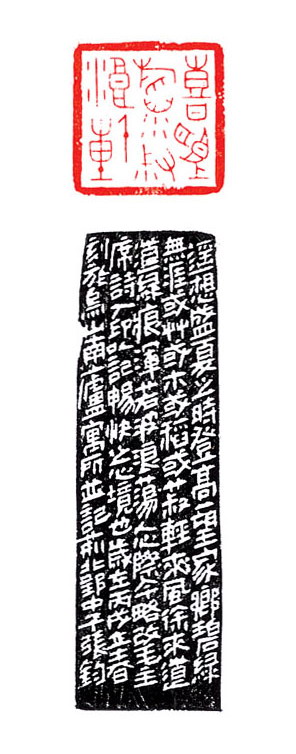 喜望
千重
遥想盛夏之時登高望家鄉碧綠
無涯或艸或木或稻或菽輕爽風徐來
綠痕渾若波浪蕩心際今略改毛主
席詩一印以記暢快之境也歲在丙戌立春
刻於烏山南廬寓所並記荊北郢中子張鈞